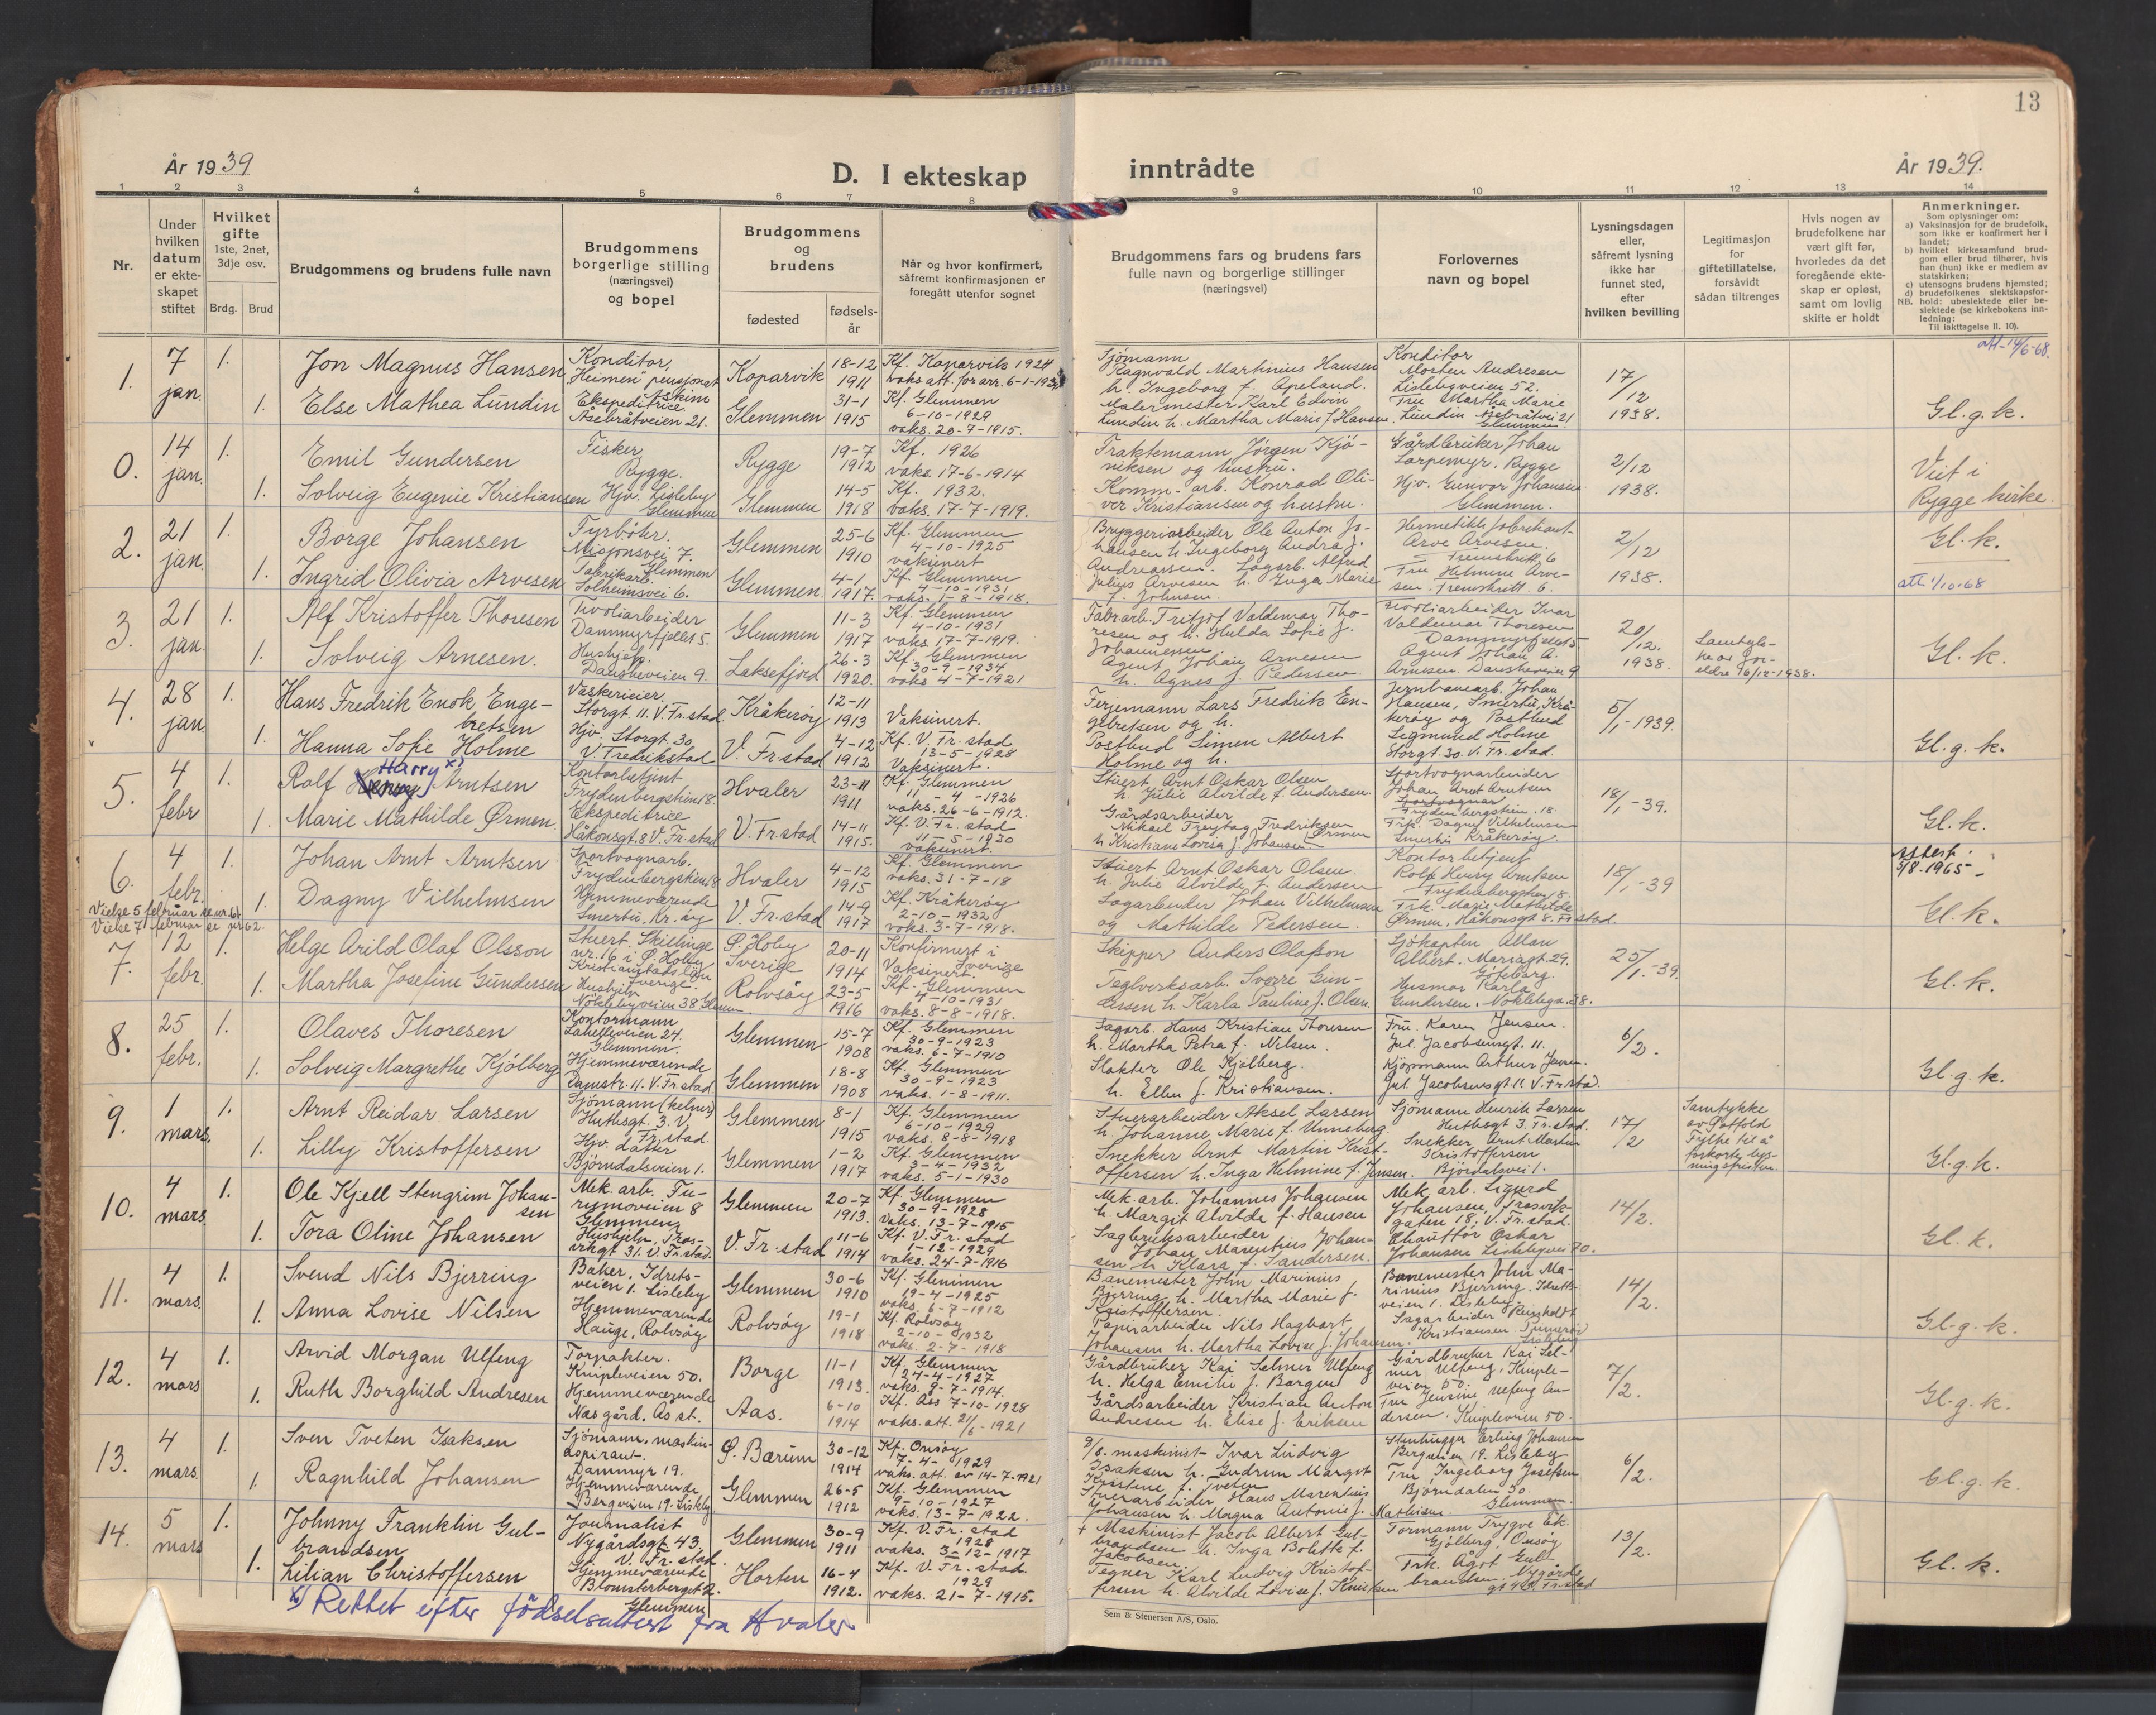 13
År 1939
D. I ekteskap inntrådte
År 1939.
1 2 3 4 5 6 7 8 9 10 11 12 13 14
Nr.
Under hvilken datum er ekteskapet stiftet
Hvilket gifte 1ste, 2net, 3dje osv.
Brdg. Brud
Brudgommens og brudens fulle navn
Brudgommens borgerlige stilling (næringsvei) og bopel
Brudgommens og brudens
fødested
fødselsår
Når og hvor konfirmert, såfremt konfirmasjonen er foregått utenfor sognet
Brudgommens fars og brudens fars fulle navn og borgerlige stillinger (næringsvei)
Forlovernes navn og bopel
Lysningsdagen eller, såfremt lysning ikke har funnet sted, efter hvilken bevilling
Legitimasjon for giftetillatelse, forsåvidt sådan tiltrenges
Hvis nogen av brudefolkene har vært gift før, hvorledes da det foregående ekteskap er opløst, samt om lovlig skifte er holdt
Anmerkninger.
Som oplysninger om:
a) Vaksinasjon for de brudefolk, som ikke er konfirmert her i landet;
b) hvilket kirkesamfund brudgom eller brud tilhører, hvis han (hun) ikke er medlem av statskirken;
c) utensogns brudens hjemsted;
d) brudefolkenes slektskapsforhold: ubeslektede eller beslektede (se kirkebokens innledning:
NB.
Til iakttagelse II. 10).
1. 7 jan. 1. Jon Magnus Hansen
Konditor, "Heimen" pensjonat Askim
Koparvik 18-12 1911
Kf. Koparvik 1924
vaks. att. for arr. 6-1-193
1. Else Mathea Lundin
Ekspeditrice Åsebråtveien 21.
Glemmen 31-1 1915
Kf. Glemmen 6-10-1929
vaks. 20-7-1915.
Sjømann Ragnvald Martinius Hansen h. Ingeborg f. Apeland.
Malermester Karl Edvin Lundin h. Martha Marie f. Hansen.
Konditor Morten Andresen Lislebyveien 52.
Fru Martha Marie Lundin Åsebråtvei 21 Glemmen
17/12 1938.
att. 14/6-68.
Gl. g. k.
0. 14 jan. 1. Emil Gundersen
Fisker, Rygge.
Rygge 19-7 1912
Kf. 1926
vaks. 17-6-1914
1. Solveig Eugenie Kristiansen
Hjv. Lisleby Glemmen
Glemmen 14-5 1918
Kf. 1932.
vaks. 17-7-1919.
Fraktemann Jørgen Kjøniksen og hustru.
Komm.-arb. Konrad Oliver Kristiansen og hustru.
Gårdbruker Johan Sarpemyr. Rygge
Hjv. Gunvor Johansen Glemmen.
2/12 1938.
Viet i Rygge kirke.
2. 21 jan. 1. Borge Johansen
Fyrbøter. Misjonsvei 7. Glemmen
Glemmen 25-6 1910
Kf. Glemmen 4-10-1925
vaksinert
1. Ingrid Olivia Arvesen
Fabrikarb. Solheimsvei 6.
Glemmen 4-1 1917.
Kf. Glemmen 4-10-1931
vaks. 1-8-1918.
Bryggeriarbeider Ole Anton Johansen h. Ingeborg Andra f. Andreassen.
Sagarb. Alfred Julius Arvesen h. Inga Marie f. Johnsen.
Arve Arvesen. Fremskritt 6
Fru Helmine Arvesen. Fremskritt. 6.
2/12 1938.
Gl. k.
att. 1/10-68
3. 21 jan. 1. Alf Kristoffer Thoresen
Tivoliarbeider Dammyrfjellet 5.
Glemmen 11-3 1917
Kf. Glemmen 4-10-1931
vaks. 17-7-1919.
1. Solveig Arnesen.
Hushjelp. Danskeveien 9.
Laksefjord 26-3 1920.
Kf. Glemmen 30-9-1934
vaks 4-7-1921
Fabr.arb. Fritjof Valdemar Thoresen og h. Hulda Sofie f. Johannessen
Agent Johan Arnesen h. Agnes f. Pedersen.
Tivoliarbeider Ivar Valdemar Thoresen Dammyrfjellet 5
Agent Johan A. Arnesen. Danskeveien 9
20/12. 1938.
Samtykke av foreldre 16/12-1938.
Gl. k.
4. 28 jan. 1. Hans Fredrik Enok Engebretsen
Vaskerieier. Storgt. 11. V. Fr.stad
Kråkerøy 12-11 1913
Vaksinert.
1. Hanna Sofie Holme
Hjv. Storgt. 30. V. Fredrikstad
V. Fr.stad 4-12 1912
Kf. V. Fr. stad 13-5-1928
Vaksinert.
Ferjemann Lars Fredrik Engebretsen og h.
Postbud Simen Albert Holme og h.
Jernbanearb. Johan Hansen, Smertu, Kråkerøy og Postbud Sigmund Holme Storgt. 30. V. Fr. stad
5/1-1939.
Gl. g. k.
5. 4 febr 1. Rolf Harry x) Arntsen
Kontorbetjent Frydenbergskim 18.
Hvaler 23-11 1911
Kf. Glemmen 11-4-1926
vaks. 26-6-1912.
1. Marie Mathilde Ørmen
Ekspeditrice Håkonsgt. 8 V. Fr. stad
V. Fr. stad 14-11 1915.
Kf. V. Fr. stad 11-5-1930
vaksinert.
Stuert Arnt Oskar Olsen h. Julie Alvilde f. Andersen.
Gårdsarbeider Mikael Freytag Fredriksen Ørmen h. Kristiane Lovisa f. Johansen
Sportvognarbeider Johan Arnt Arntsen Frydenbergskim. 18.
Frk. Dagny Vilhelmsen Smertu Kråkerøy.
18/1-39.
Gl. k.
6. 4 febr. 1. Johan Arnt Arntsen
Sportvognarb. Frydenbergskim 18
Hvaler 4-12 1915
Kf. Glemmen
vaks. 31-7-18
1. Dagny Vilhelmsen
Hjemmeværende Smertu, Kr. øy
V. Fr. stad 14-9 1917
Kf. Kråkerøy 2-10-1932
vaks. 3-7-1918.
Stuert Arnt Oskar Olsen. h. Julie Alvilde f. Andersen
Sagarbeider Johan Vilhelmsen og Mathilde Pedersen.
Kontorbetjent Rolf Henry Arntsen Frydenbergskog 18.
Frk. Marie Mathilde Ørmen. Håkonsgt 8. Fr stad
18/1-39
Attest 5/8-1965
Gl. k.
Vielse 5 februar se nr. 61
Vielse 7 februar se nr 62.
7. 12 febr. 1. Helge Arild Olaf Olsson
Stuert. Skillinge nr. 16 i Ø. Hoby Kristianstads län Sverige.
Ø. Hoby Sverige 20-11 1914
Konfirmert i Sverige
Vaksinert.
1. Martha Josefine Gundersen
Hushjelp Nøklebyveien 38 Glemm.
Rolvsøy 23-5 1916
Kf. Glemmen 4-10-1931
vaks. 8-8-1918.
Skipper Anders Olofson
Teglverksarb. Sverre Gundersen h. Karla Pauline f. Olsen.
Sjökapten Allan Albert. Mariagt 29. Göteborg.
Husmor Karla Gundersen. Nøklebyv. 38.
25/1-39.
Gl. k.
8. 25 febr. 1. Olaves Thoresen
Kontormann Labelleveien 24. Glemmen.
Glemmen 15-7 1908
Kf. Glemmen 30-9-1923
vaks. 6-7-1910
1. Solveig Margrethe Kjølberg
Hjemmeværende Damstr. 11. V. Fr. stad.
Glemmen 18-8 1908
Kf. Glemmen 30-9-1923
vaks. 1-8-1911.
Sagarb. Hans Kristian Thoresen h. Martha Petra f. Nilsen.
Slakter Ole Kjølberg. h. Ellen f. Kristiansen.
Fru. Karen Jensen. Jul. Jacobsensgt. 11.
Kjøpmann Arthur Jensen. Jul Jacobsensgt 11 V. Fr stad.
6/2.
Gl. g. k.
9. 1 mars. 1. Arnt Reidar Larsen
Sjømann (kelner) Huthsgt. 3. V. Fr. stad.
Glemmen 8-1 1915
Kf. Glemmen 6-10-1929
vaks. 8-8-1918
1. Lilly Kristoffersen
Hjv. datter Bjørndalsveien 1.
Glemmen 1-2 1917
Kf. Glemmen 3-4-1932
vaks. 5-1-1930
Stuerarbeider Aksel Larsen h. Johanne Marie f. Unneberg.
Snekker Arnt Martin Kristoffersen h. Inga Helmine f. Jensen.
Sjømann Henrik Larsen Huthsgt 3. Fr. stad.
Snekker Arnt Martin Kristoffersen Bjørndalsvei 1.
17/2
Samtykke av Østfold Fylke til å forkorte lysningsfristen.
Gl. g. k.
10. 4 mars 1. Ole Kjell Stengrim Johansen
Mek. arb. Furumoveien 8 Glemmen
Glemmen 20-7 1913.
Kf. Glemmen 30-9-1928
Vaks. 13-7-1915
1. Tora Oline Johansen
Hushjelp, Trosvikgt 31. V. Fr. stad.
V. Fr. stad 11-6 1914
Kf. V. Fr. stad 1-12-1929
vaks. 24-7-1916
Mek. arb. Johannes Johansen h. Margit Alvilde f. Hansen
Sagbruksarbeider Johan Marentius Johansen h. Klara f. Sandersen.
Mek. arb. Sigurd Johansen, Trosvikgaten 18. V. Fr. stad.
Chauffør Oskar Johansen Lislebyvei 70.
14/2.
Gl. k.
11. 4 mars. 1. Svend Nils Bjerring
Baker, Idretsveien 1. Lisleby
Glemmen 30-6 1910
Kf. Glemmen 19-4-1925
vaks. 6-7-1912
1. Anna Lovise Nilsen
Hjemmeværende Hauge, Rolvsøy
Rolvsøy 19-1 1918
Kf. Rolvsøy 2-10-1932
vaks. 2-7-1918
Banemester John Marinius Bjerring h. Martha Marie f. Kristoffersen.
Papirarbeider Nils Hagbart Johansen h. Martha Lovise f. Johansen.
Banemester John Marinius Bjerring. Idrettsveien 1. Lisleby.
Sagarbeider Reinholdt Kristiansen Lisleby
14/2.
Gl. g. k.
12. 4 mars 1. Arvid Morgan Ulfeng
Torpakter. Knipleveien 50.
Borge 11-1 1913.
Kf. Glemmen 24-4-1927
vaks. 9-7-1914.
1. Ruth Borghild Andresen
Hjemmeværende Næs gård. Ås st.
Aas. 6-10 1914
Kf. Ås 7-10-1928
vaks. att. 21/6-1921
Gårdbruker Kai Selmer Ulfeng h. Helga Emilie f. Borgen
Gårdsarbeider Kristian Anton Andresen h. Elise f. Eriksen
Gårdbruker Kai Selmer Ulfeng. Knipleveien 50.
Fru Jensine Ulfeng Andersen. Knipleveien 50.
7/2.
Gl. g. k.
13. 4 mars. 1. Sven Tveten Isaksen
Sjømann, maskinaspirant. Dammyr 19.
Ø. Bærum 30-12 1914
Kf. Onsøy 7-4-1929
vaks. att. av 14-7-1921
1. Ragnhild Johansen
Hjemmeværende Bergveien 19. Lisleby
Glemmen 26-5 1912
Kf. Glemmen 9-10-1927
vaks. 13-7-1922.
maskinist Ivar Ludvig Isaksen h. Gudrun Margot Kristine f. Tveten
Stuerarbeider Hans Marentius Johansen h. Magna Antonie f. Mathisen
Stenhugger Erling Johansen Bergveien 19. Lisleby
Fru Ingeborg Josefsen Bjørndalen 30. Glemmen.
6/2.
Gl. g. k.
14. 5 mars 1. Johnny Franklin Gulbrandsen
Journalist Nygårdsgt 43, V. Fr. stad.
Glemmen 30-9 1911
Kf. V. Fr. stad 1928
vaks. 3-12-1917
1. Lilian Christoffersen
Hjemmeværende Blomsterberget 2. Glemmen
Horten 16-4 1912.
Kf. V. Fr. stad. 1929
vaks. 21-7-1915.
+ Maskinist Jacob Albert Gulbrandsen h. Inga Bolette f. Jakobsen.
Tegner Karl Ludvig Kristoffersen h. Alvilde Lovise f. Knutsen
Tormann Trygve Ek. Gjølberg, Onsøy
Frk. Ågot Gulbrandsen. Nygårdsgt 43 Fr. stad
13/2.
Gl. k.
x) Rettet efter fødselsattest fra Hvaler
Sem & Stenersen A/S, Oslo.